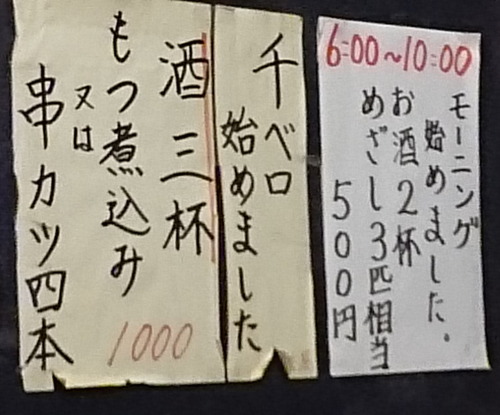 6:00〜10:00
モーニング
始めました。
お酒2杯
めざし3匹相当
500円
千ベロ
始めました
酒三杯
もつ煮込み
又は
串カツ四本
1000